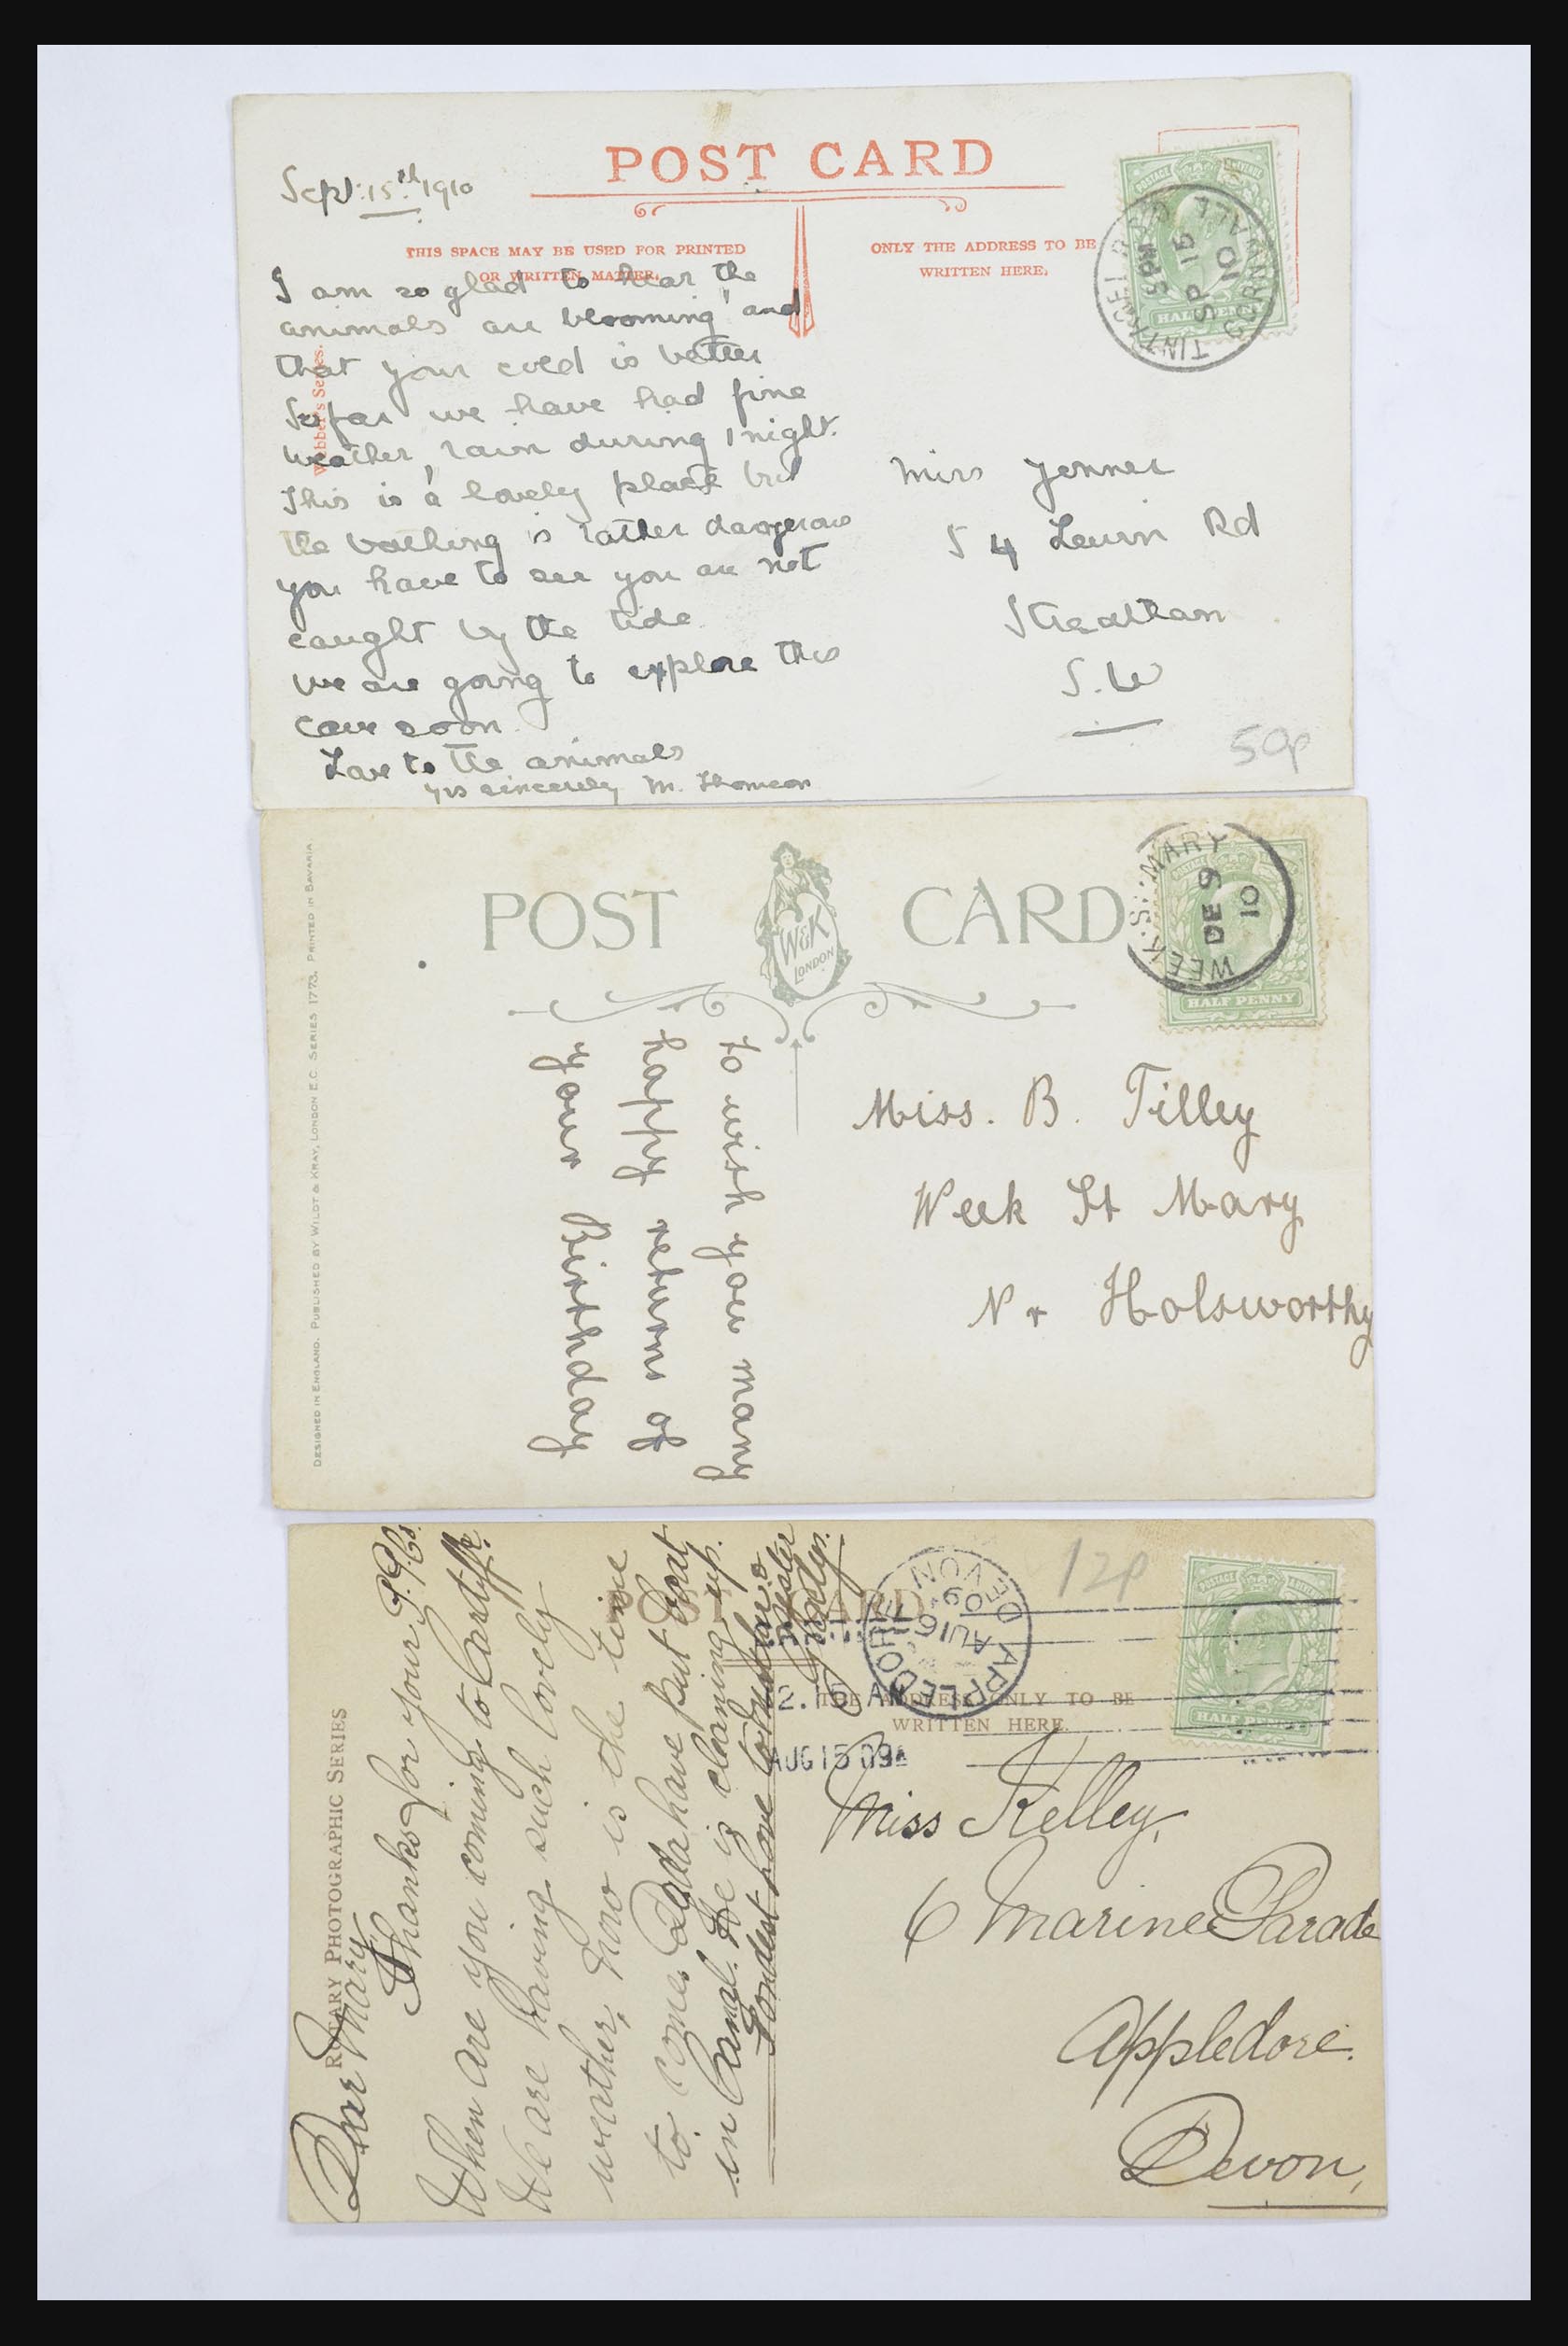 POST CARD
Sept: 15th 1910
THIS SPACE MAY BE USED FOR PRINTED
OR WRITTEN MATTER.
ONLY THE ADDRESS TO BE
WRITTEN HERE.
TINTAGEL
CORNWALL
SP 15
10
HALF PENNY
Webber's Series.
I am so glad to hear the
animals are blooming and
that your cold is better
So far we have had fine
weather, rain during 1 night.
This is a lovely place but
the bathing is rather dangerous
you have to see you are not
caught by the tide.
We are going to explore this
cave soon.
Love to the animals
yrs sincerely M. Thomson
Miss Jenner
54 Rd
Streatham
S.W
50p
POST CARD
W&K
LONDON
WEEK.ST.MARY
DE 9
10
HALF PENNY
DESIGNED IN ENGLAND. PUBLISHED BY WILDT & KRAY, LONDON E.C. SERIES 1773. PRINTED IN BAVARIA
To wish you many
happy returns of
your Birthday
Miss. B. Tilley
Week St Mary
Nr Holsworthy
POST CARD
12p
APPLEDORE DEVON
AU 16
09
POSTAGE
HALF PENNY
THE ADDRESS ONLY TO BE
WRITTEN HERE.
AUG 15 09
ROTARY PHOTOGRAPHIC SERIES
Dear Mary
Thanks for your P.P.Cs.
When are you coming to Cardiff.
We are having such lovely
weather, now is the time
to come. Dada have put boat
in Canal. He is cleaning up.
Fondest love to
Gladys.
Miss Kelley,
6 Marine Parade
Appledore.
Devon,